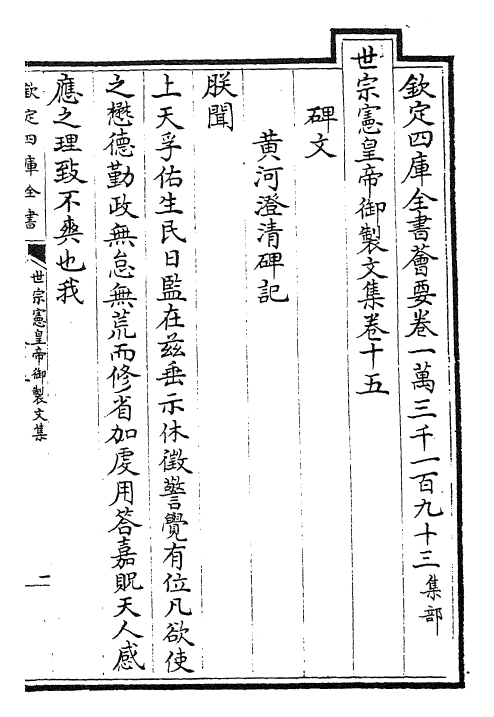 欽定四庫全書薈要卷一萬三千一百九十三集部
世宗憲皇帝御製文集卷十五
碑文
黄河澄清碑記
朕聞
上天孚佑生民日監在兹垂示休徵警覺有位凡欲使
之懋德勤政無怠無荒而修省加虔用答嘉貺天人感
應之理致不爽也我
欽定四庫全書
世宗憲皇帝御製文集